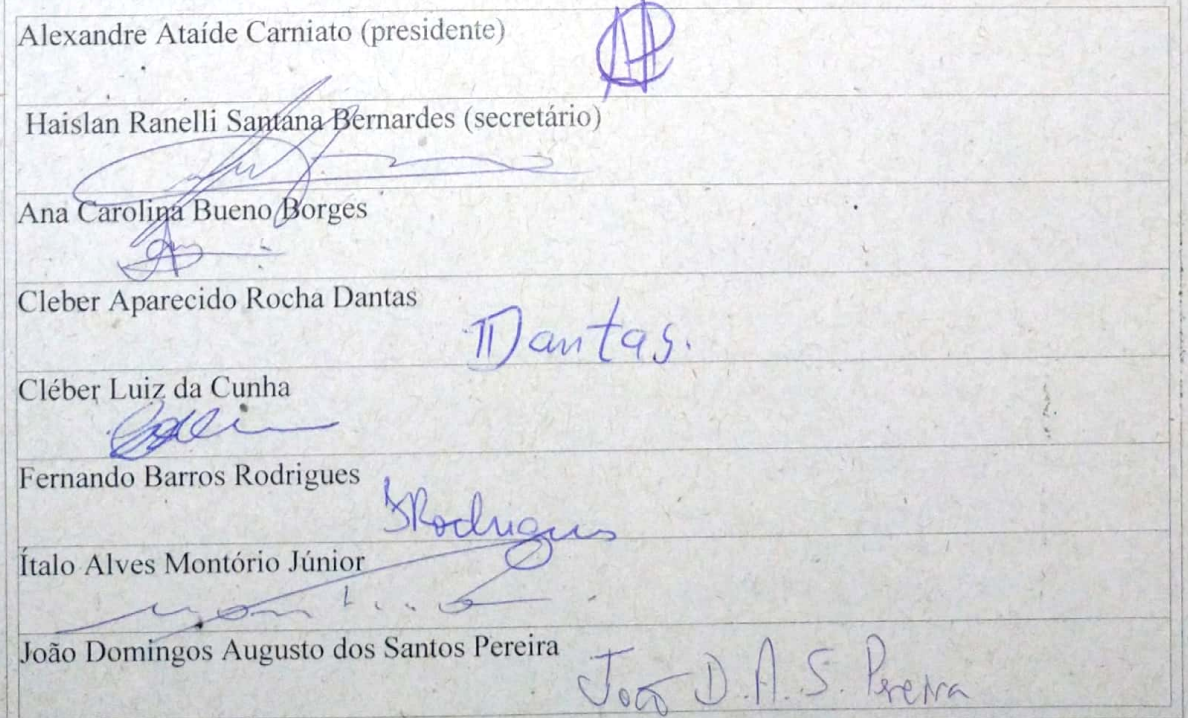 Alexandre Ataíde Carniato (presidente)
Haislan Ranelli Santana Bernardes (secretário)
Ana Carolina Bueno Borges
Cleber Aparecido Rocha Dantas
Dantas.
Cléber Luiz da Cunha
Fernando Barros Rodrigues
Rodrigues
Ítalo Alves Montório Júnior
João Domingos Augusto dos Santos Pereira
João D. A. S. Pereira